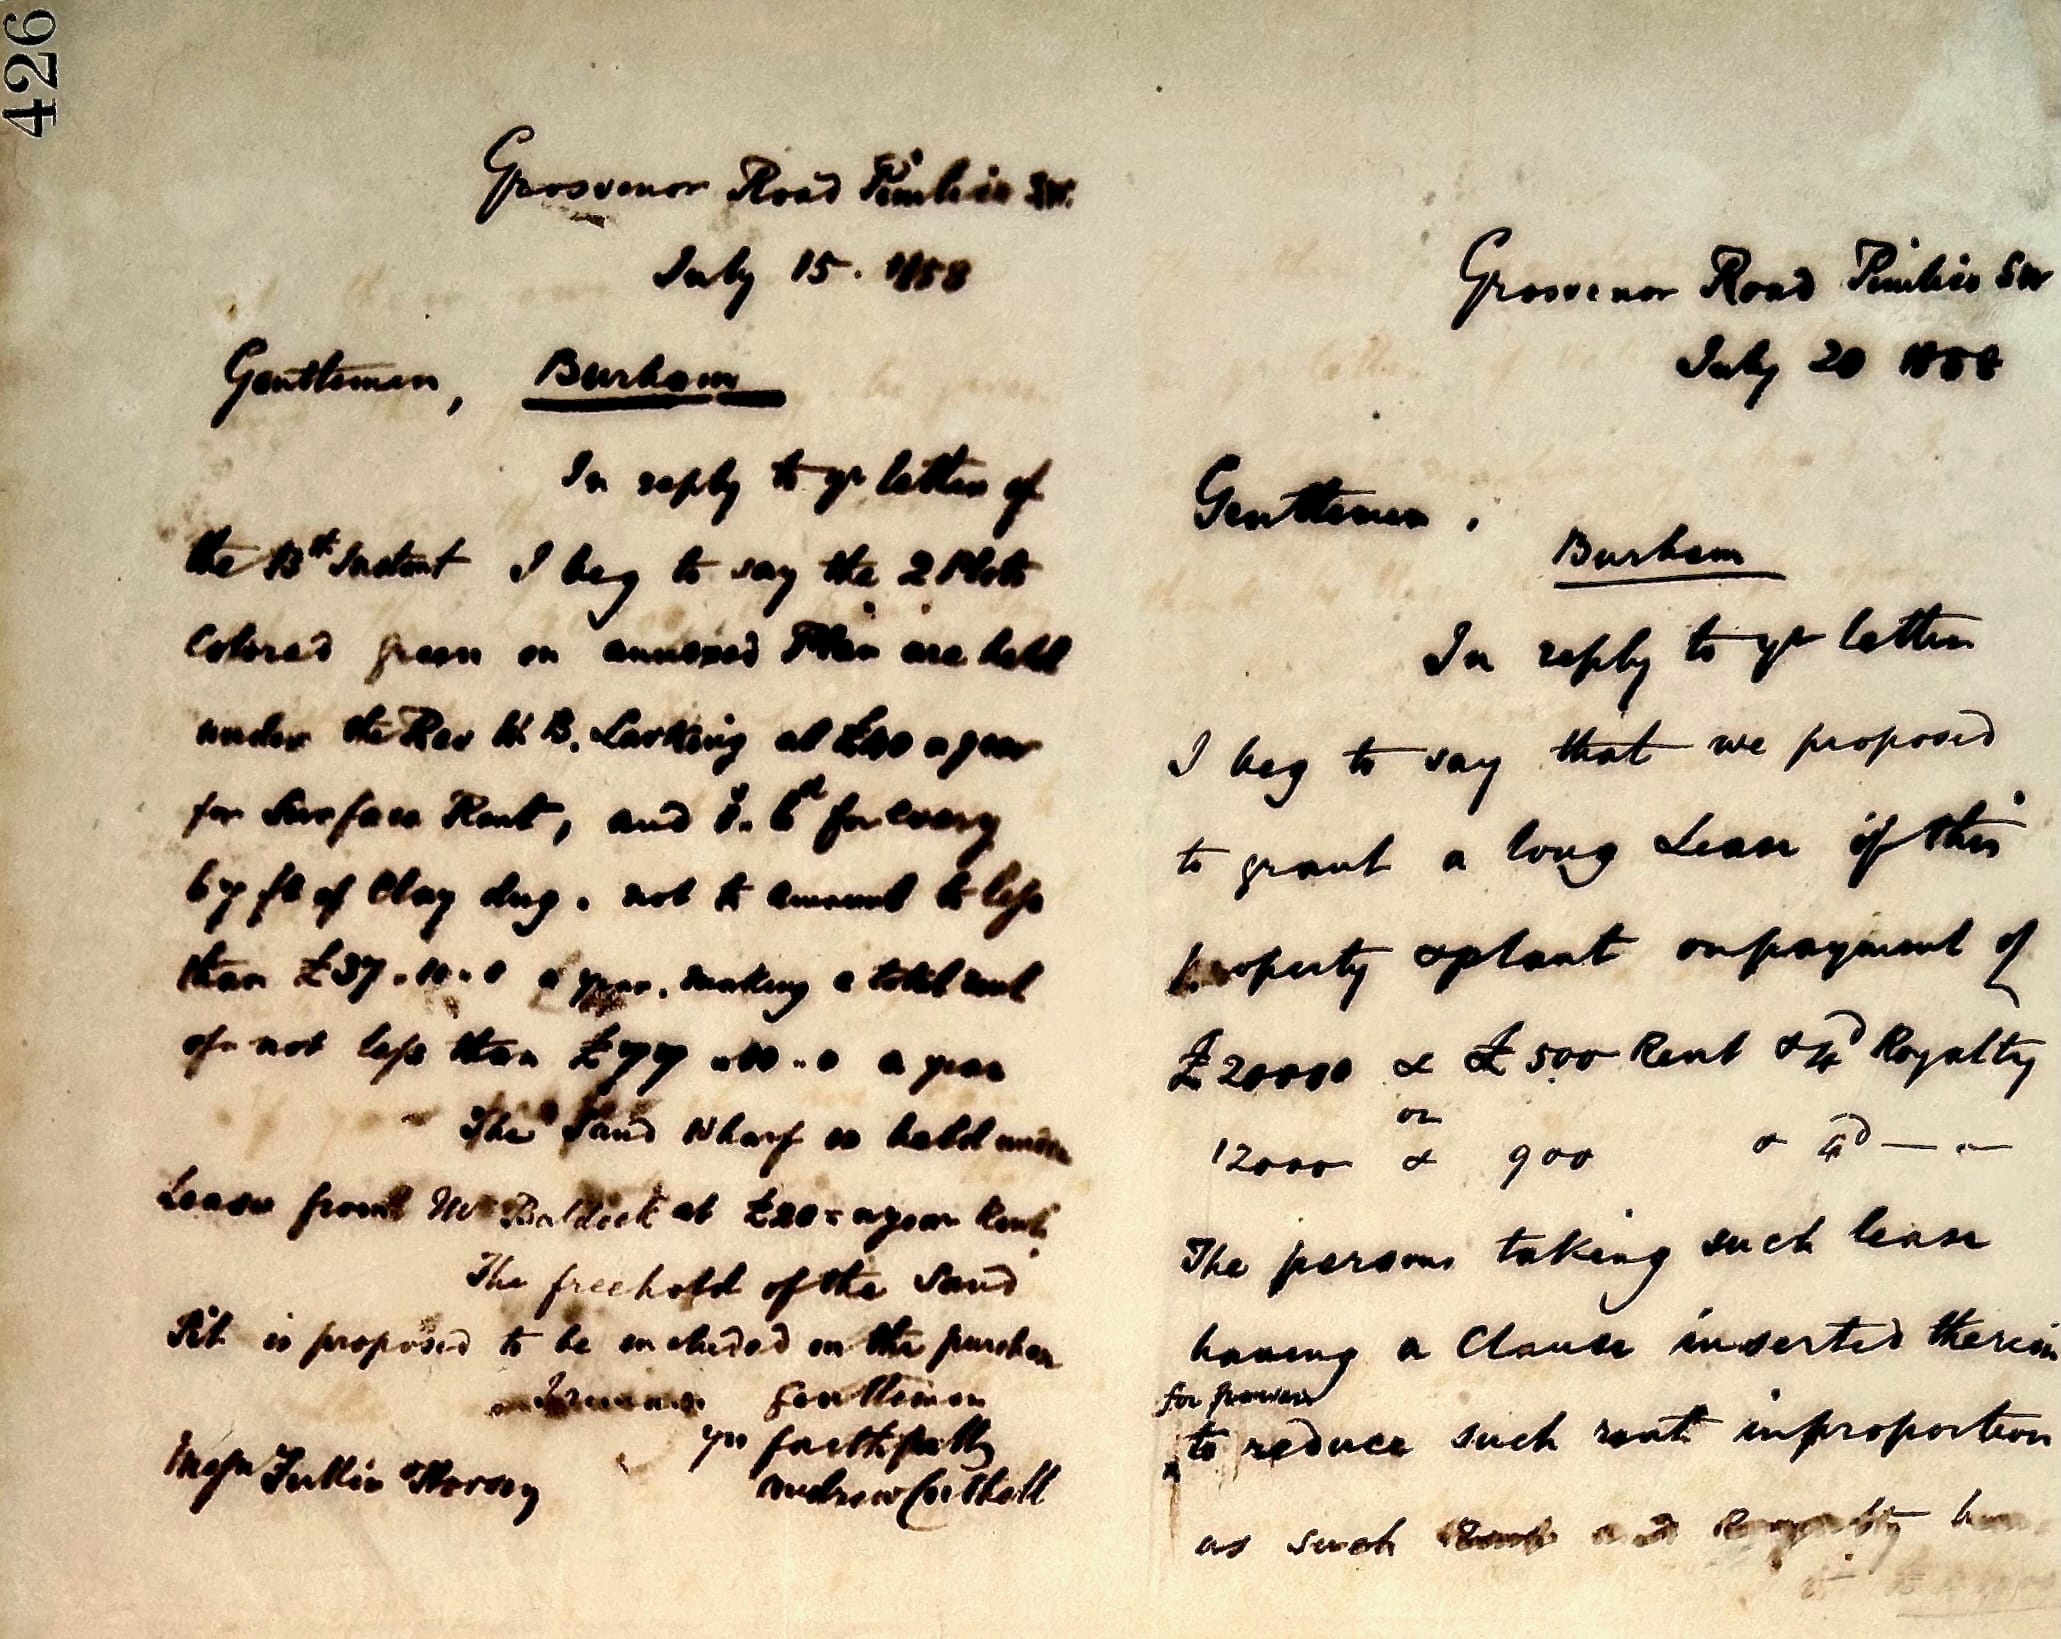 426
Grosvenor Road Pimlico SW.
July 15. 1858
Gentlemen, Burham
In reply to yr letter of
the 13th Instant I beg to say the 2 Plots
Colored green on annexed Plan are held
under the Rev B. Larking at £40 a year
for Surface Rent, and 6d for every
67 ft of Clay dug. not to amount to less
than £37.10.0 a year. making a total rent
of not less than £77.10.0 a year
The Sand Wharf is held under
Lease from Mr Baldock at £20 = a year Rent
The freehold of the Sand
Pit is proposed to be included in the purchase
Gentlemen
yrs faithfully
Andrew Cuthell
Messrs Fuller & Horsey
Grosvenor Road Pimlico SW
July 20 1858
Gentlemen,
Burham
In reply to yr letter
I beg to say that we proposed
to grant a long Lease of this
property & plant on payment of
£20000 & £500 Rent & 4d Royalty
or
12000 & 900 & 4d — " —
The persons taking such lease
having a Clause inserted therein
for
to reduce such rent in proportion
as such and Royalty